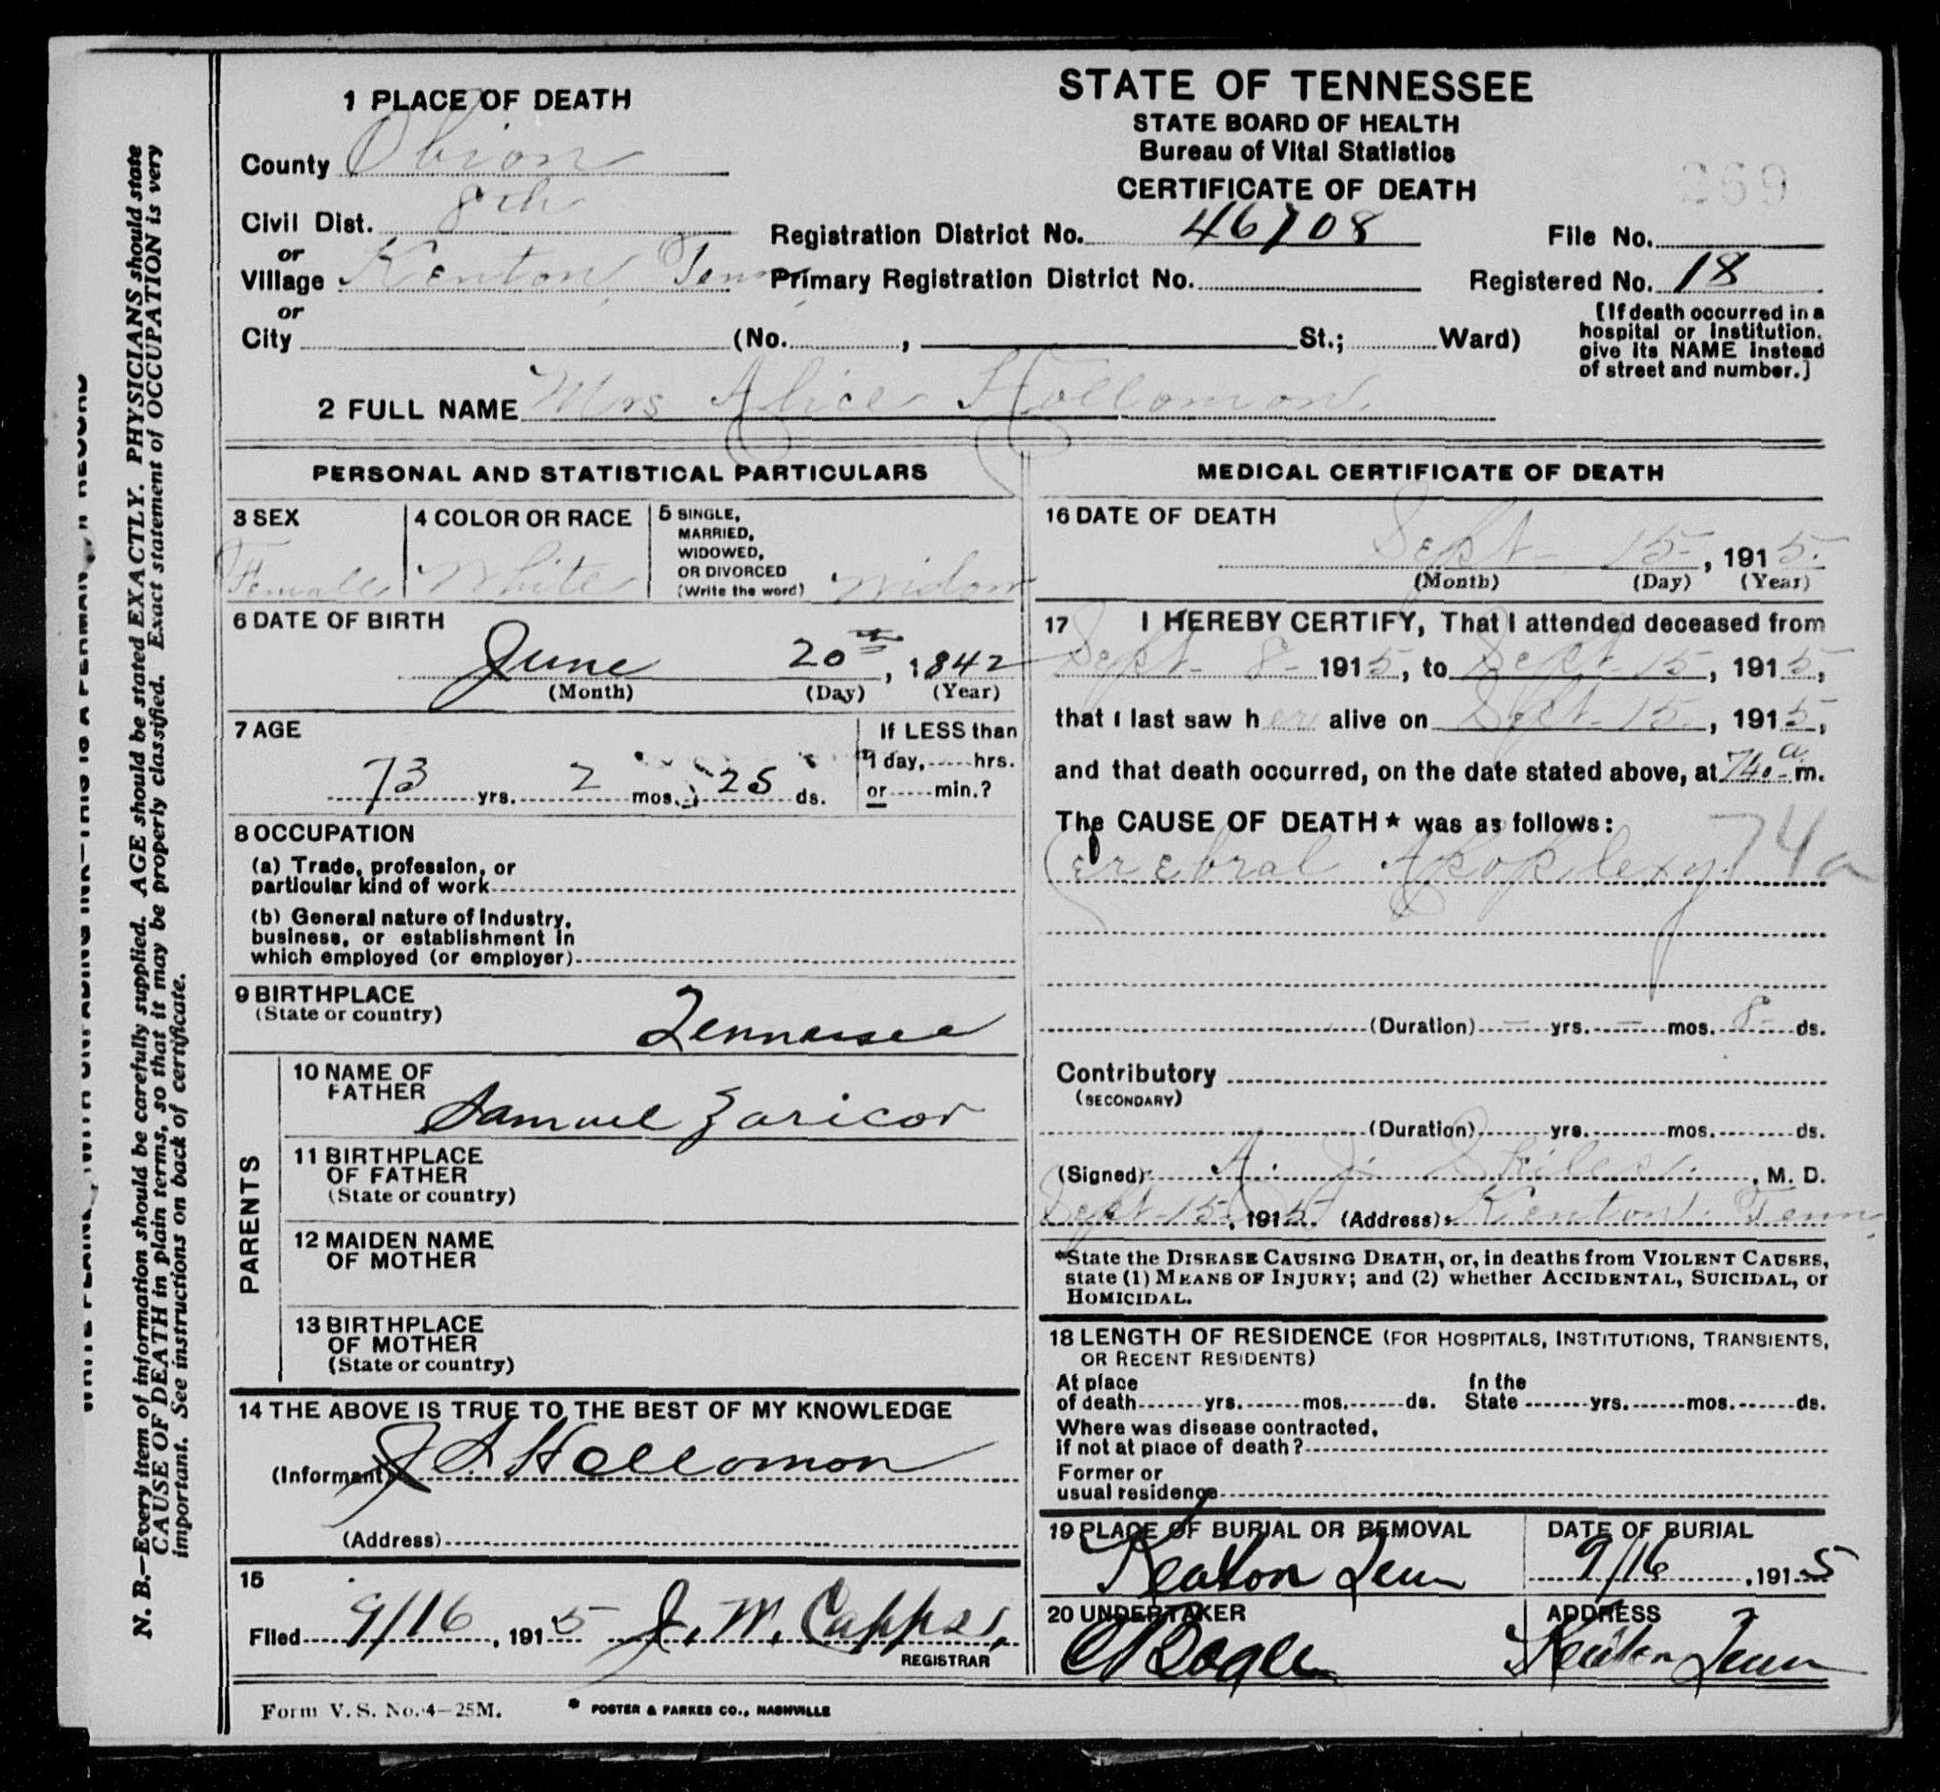 STATE OF TENNESSEE
STATE BOARD OF HEALTH
Bureau of Vital Statistics
CERTIFICATE OF DEATH
269
1 PLACE OF DEATH
County Obion
Civil Dist. 8th
or
Village Kenton, Tenn
or
City (No. , St.; Ward)
Registration District No. 46108
File No.
Primary Registration District No.
Registered No. 18
[If death occurred in a
hospital or institution,
give its NAME instead
of street and number.]
2 FULL NAME Mrs Alice Hollomon
PERSONAL AND STATISTICAL PARTICULARS
3 SEX Female
4 COLOR OR RACE White
5 SINGLE,
MARRIED,
WIDOWED,
OR DIVORCED
(Write the word) Widow
6 DATE OF BIRTH
June 20th, 1842
(Month) (Day) (Year)
7 AGE
73 yrs. 2 mos. 25 ds.
If LESS than
1 day, hrs.
or min.?
8 OCCUPATION
(a) Trade, profession, or
particular kind of work
(b) General nature of industry,
business, or establishment in
which employed (or employer)
9 BIRTHPLACE
(State or country) Tennessee
PARENTS
10 NAME OF
FATHER Samuel Zaricor
11 BIRTHPLACE
OF FATHER
(State or country)
12 MAIDEN NAME
OF MOTHER
13 BIRTHPLACE
OF MOTHER
(State or country)
14 THE ABOVE IS TRUE TO THE BEST OF MY KNOWLEDGE
(Informant) Hollomon
(Address)
15
Filed 9/16, 1915 J. M. Capps,
REGISTRAR
MEDICAL CERTIFICATE OF DEATH
16 DATE OF DEATH
Sept 15, 1915.
(Month) (Day) (Year)
17 I HEREBY CERTIFY, That I attended deceased from
Sept 8 1915, to Sept 15, 1915,
that I last saw her alive on Sept. 15, 1915,
and that death occurred, on the date stated above, at a m.
The CAUSE OF DEATH* was as follows:
Cerebral Apoplexy 74a
(Duration) - yrs. - mos. 8 ds.
Contributory
(SECONDARY)
(Duration) yrs. mos. ds.
(Signed) A. J. Skiles, M. D.
Sept 15, 1915. (Address) Kenton. Tenn
*State the DISEASE CAUSING DEATH, or, in deaths from VIOLENT CAUSES,
state (1) MEANS OF INJURY; and (2) whether ACCIDENTAL, SUICIDAL, or
HOMICIDAL.
18 LENGTH OF RESIDENCE (FOR HOSPITALS, INSTITUTIONS, TRANSIENTS,
OR RECENT RESIDENTS)
At place In the
of death yrs. mos. ds. State yrs. mos. ds.
Where was disease contracted,
if not at place of death?
Former or
usual residence
19 PLACE OF BURIAL OR REMOVAL
Kenton Tenn
DATE OF BURIAL
9/16, 1915
20 UNDERTAKER
Bogle
ADDRESS
Kenton Tenn
Form V. S. No. 4—25M.
* FOSTER & PARKES CO., NASHVILLE
N. B.—Every item of information should be carefully supplied. AGE should be stated EXACTLY. PHYSICIANS should state
CAUSE OF DEATH in plain terms, so that it may be properly classified. Exact statement of OCCUPATION is very
important. See instructions on back of certificate.